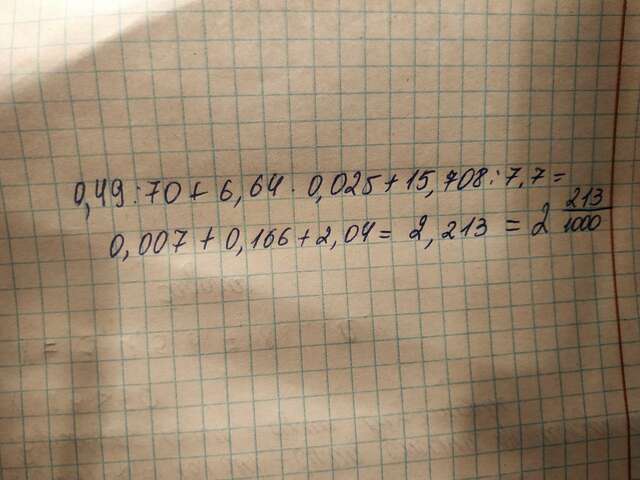 0,49:70+6,64·0,025+15,708:7,7=
0,007+0,166+2,04=2,213=2 213/1000